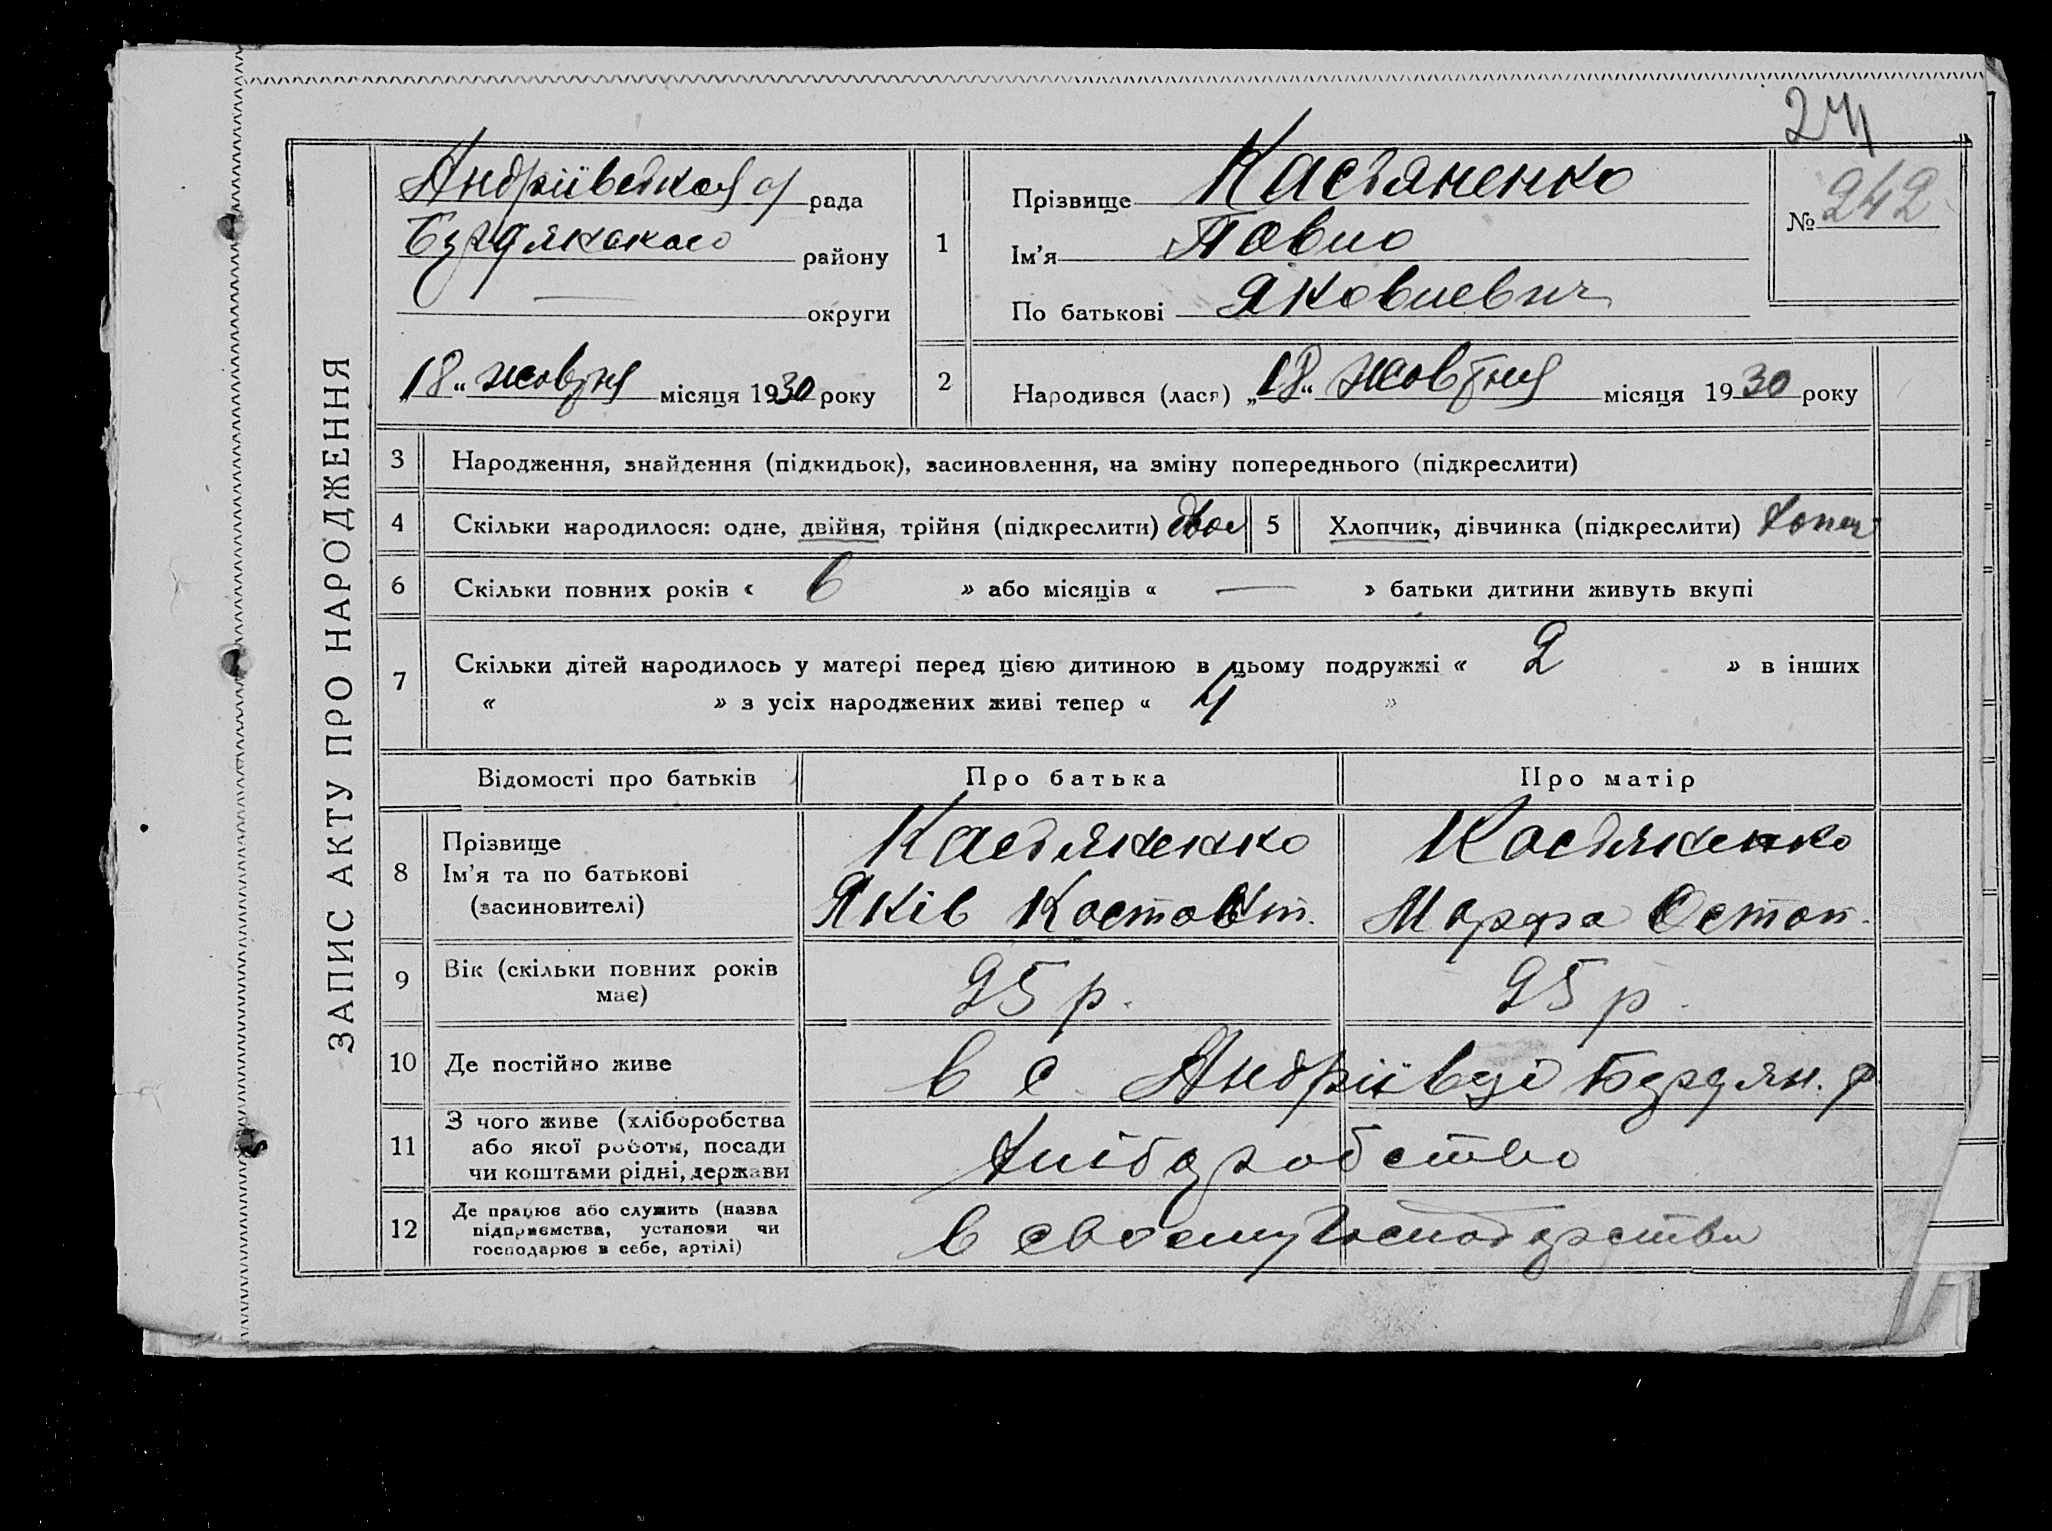 24
ЗАПИС АКТУ ПРО НАРОДЖЕННЯ
Андріївська с/ рада
Бердянского району
округи
„18“ жовтня місяця 1930 року
1
Прізвище Касьяненко
Ім'я Павло
По батькові Яковлевич
№ 242
2 Народився (лася) „18“ жовтня місяця 1930 року
3 Народження, знайдення (підкидьок), засиновлення, на зміну попереднього (підкреслити)
4 Скільки народилося: одне, двійня, трійня (підкреслити) двоє 5 Хлопчик, дівчинка (підкреслити) хлопч
6 Скільки повних років « 6 » або місяців « — » батьки дитини живуть вкупі
7 Скільки дітей народилось у матері перед цією дитиною в цьому подружжі « 2 » в інших
« » з усіх народжених живі тепер « 4 »
Відомості про батьків Про батька Про матір
8 Прізвище
Ім'я та по батькові
(засиновителі)
Касьяненко
Яків Костант.
Касьяненко
Марфа Остап.
9 Вік (скільки повних років
має)
25 р. 25 р.
10 Де постійно живе в с. Андріївці Бердян. р
11 З чого живе (хліборобства
або якої роботи, посади
чи коштами рідні, держави
хліборобство
12 Де працює або служить (назва
підприємства, установи чи
господарює в себе, артілі)
в своєму господарстві